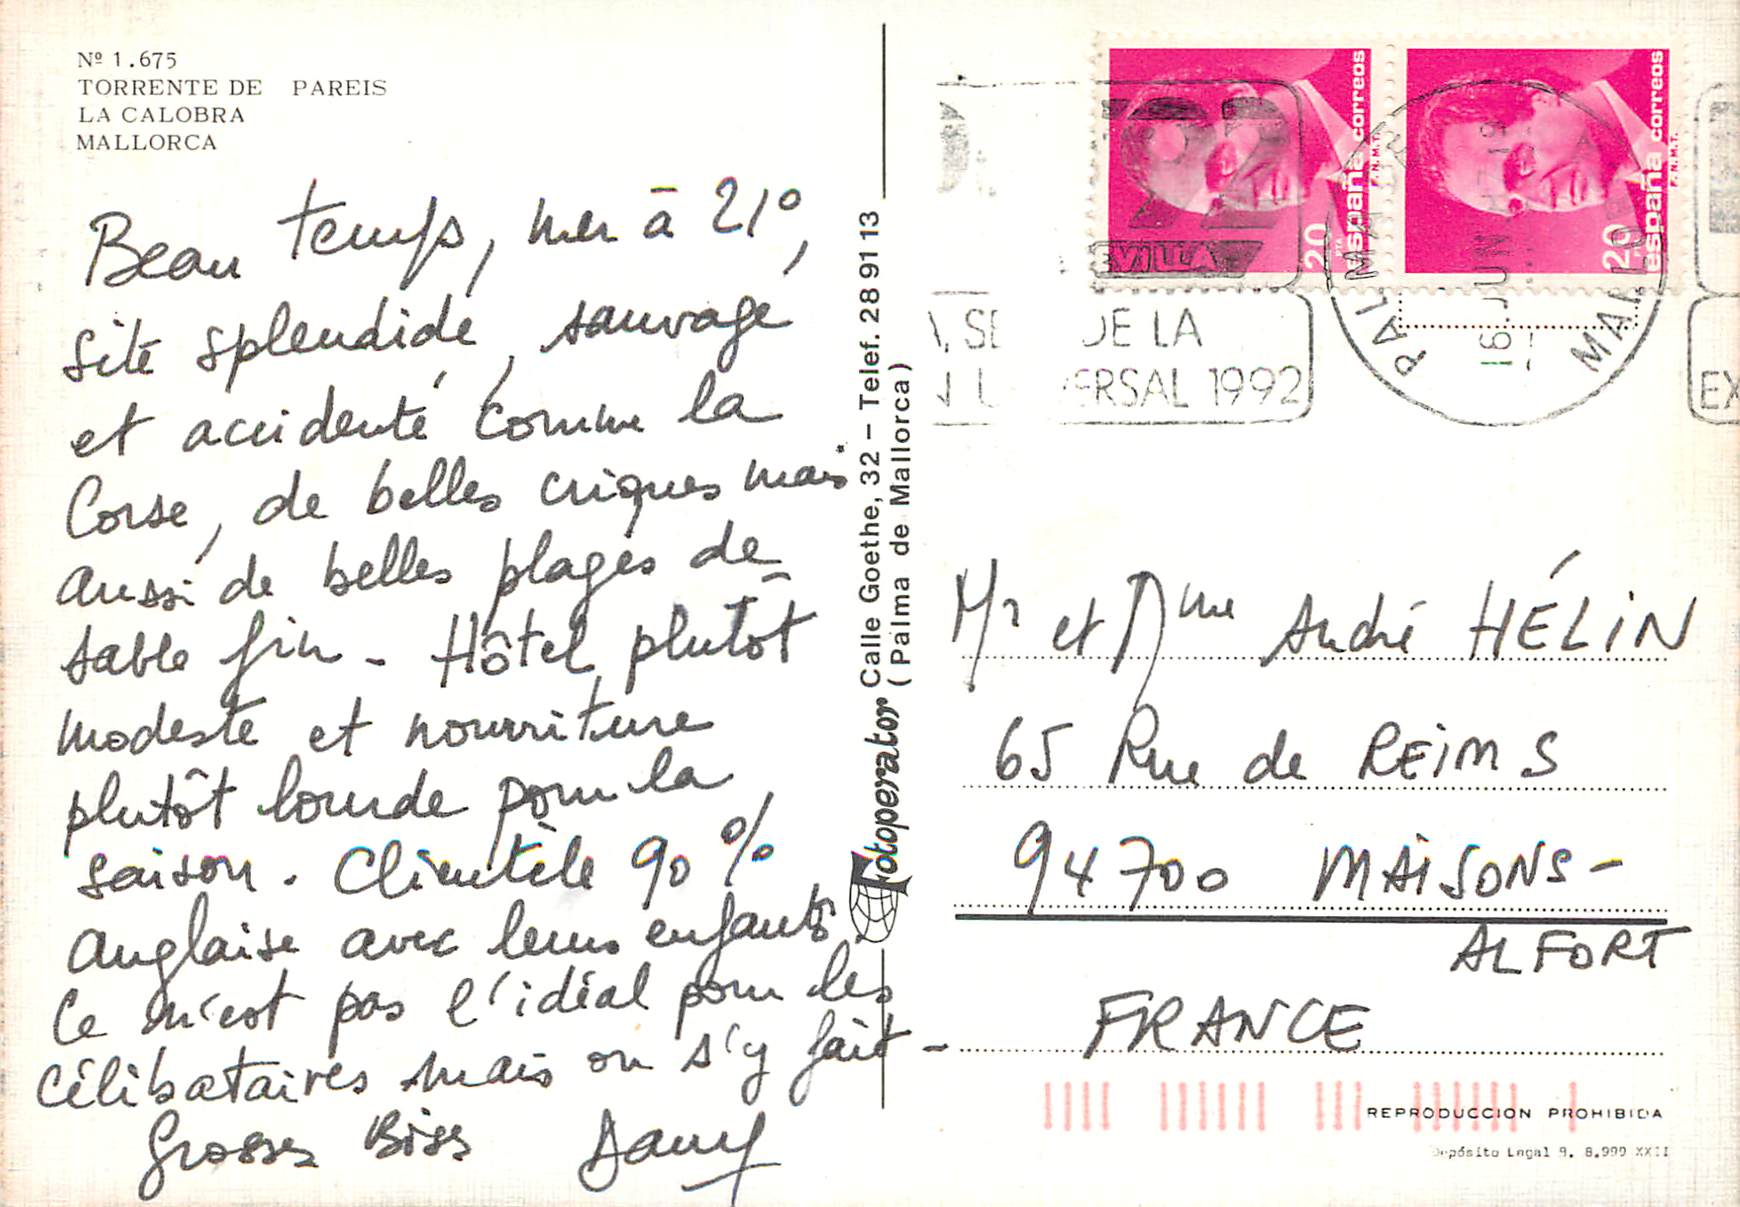 Nº 1.675
TORRENTE DE PAREIS
LA CALOBRA
MALLORCA
Beau temps, mer à 21°,
site splendide, sauvage
et accidenté comme la
Corse, de belles criques mais
aussi de belles plages de
sable fin - Hôtel plutôt
modeste et nourriture
plutôt lourde pour la
saison. Clientèle 90 %
anglaise avec leurs enfants.
Ce n'est pas l'idéal pour les
célibataires mais on s'y fait -
Grosses Biss Dany
Fotoperator Calle Goethe, 32 – Telef. 28 91 13
( Palma de Mallorca)
20 PTA
España correos
F.N.M.T.
20 PTA
España correos
F.N.M.T.
92
SEVILLA
DE LA
1992
PALMA
16 JUN
MALLO
EX
Mr et Mme André HÉLIN
65 Rue de REIMS
94700 MAISONS-
ALFORT
FRANCE
REPRODUCCION PROHIBIDA
Depósito Legal B. 8.999 XXII